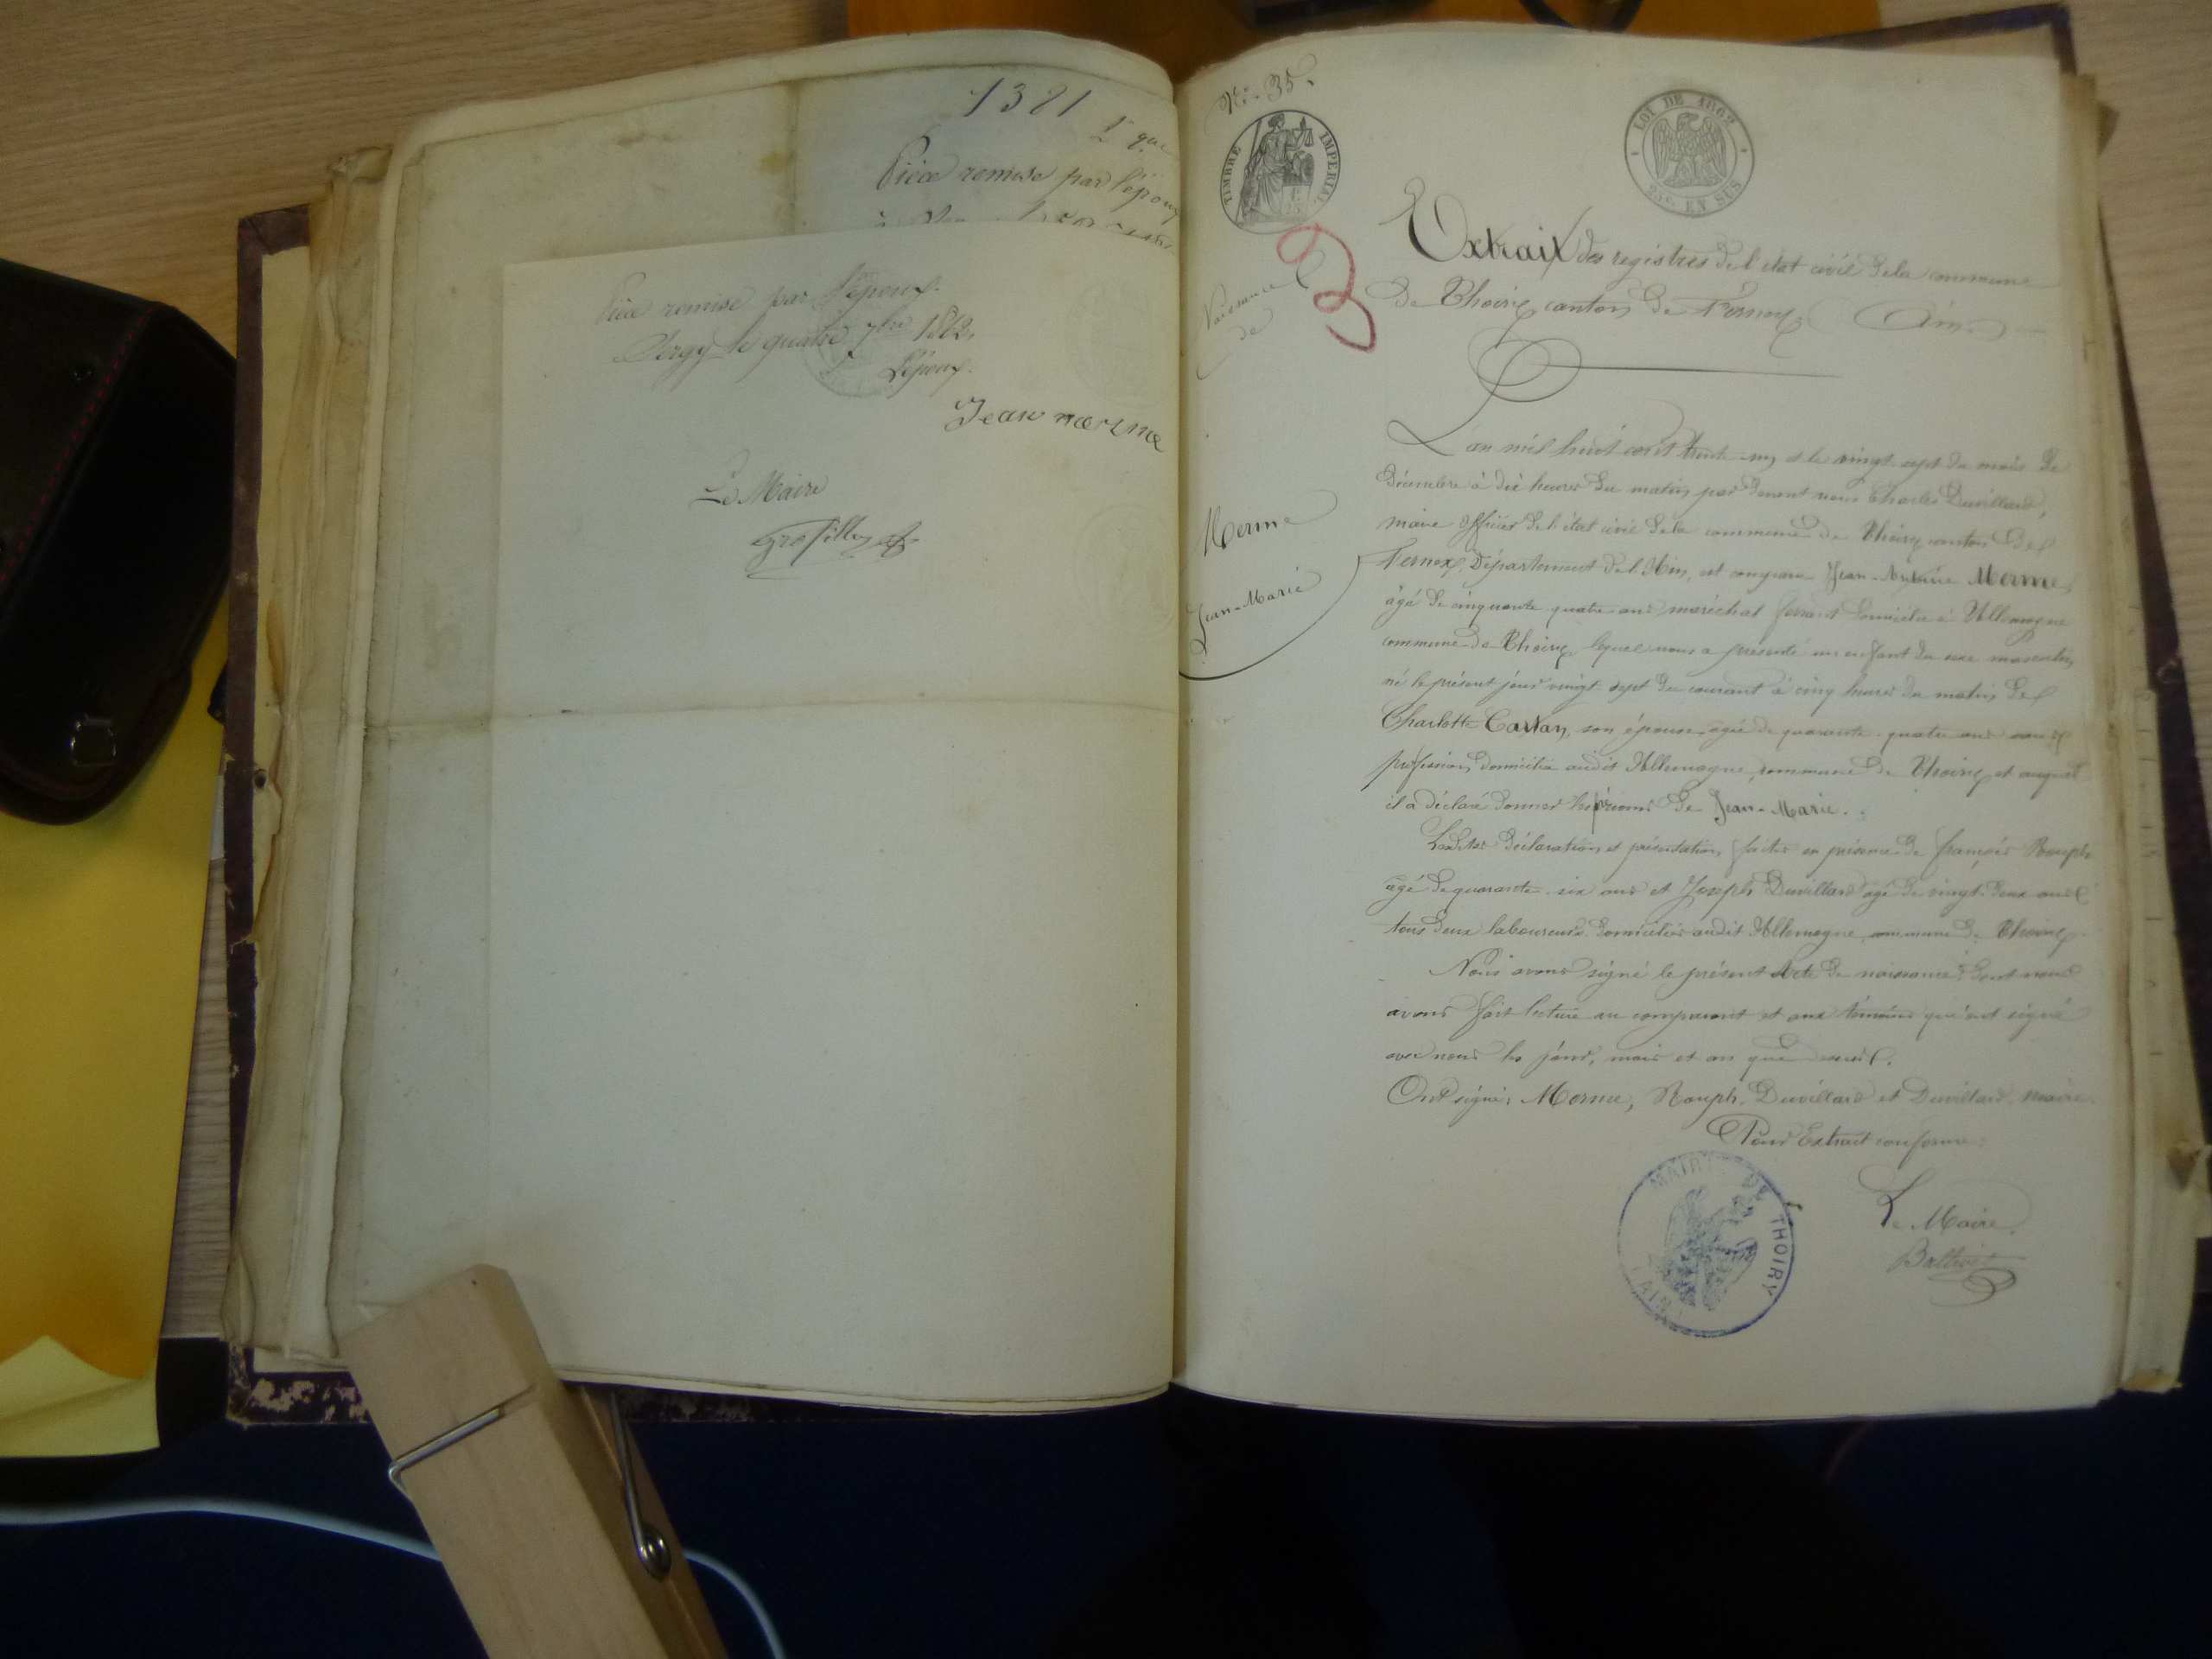 1321
Pièce remise par l'époux
Pièce remise par l'époux.
Sergy le quatre 7bre 1862.
L'époux.
Jean merme
Le Maire
Grosfilley
No. 35.
TIMBRE IMPERIAL
LOI DE 1862
25c EN SUS
Naissance
de
Merme
Jean-Marie
3
Extrait des registres de l'état civil de la commune
de Thoiry canton de Fernex (Ain.)
L'an mil huit cent trente-un et le vingt-sept du mois de
Décembre à dix heures du matin par devant nous Charles Duvillard,
maire officier de l'état civil de la commune de Thoiry canton de
Fernex, Département de l'Ain, est comparu Jean-Antoine Merme
âgé de cinquante quatre ans maréchal ferrant domicilié à Allemogne
commune de Thoiry lequel nous a présenté un enfant du sexe masculin,
né le présent jour vingt-sept du courant à cinq heures du matin de
Charlotte Carlan, son épouse âgée de quarante-quatre ans sans
profession, domiciliée audit Allemogne, commune de Thoiry et auquel
il a déclaré donner les prénoms de Jean-Marie.
Lesdites déclaration et présentation faites en présence de françois Rouph
âgé de quarante-six ans et Joseph Duvillard âgé de vingt-deux ans
tous deux laboureurs domiciliés audit Allemogne, commune de Thoiry.
Nous avons signé le présent Acte de naissance dont nous
avons fait lecture au comparant et aux témoins qui ont signé
avec nous les jour, mois et an que dessus.
Ont signé: Merme, Rouph, Duvillard et Duvillard maire.
Pour Extrait conforme:
MAIRIE DE THOIRY
(AIN)
Le Maire